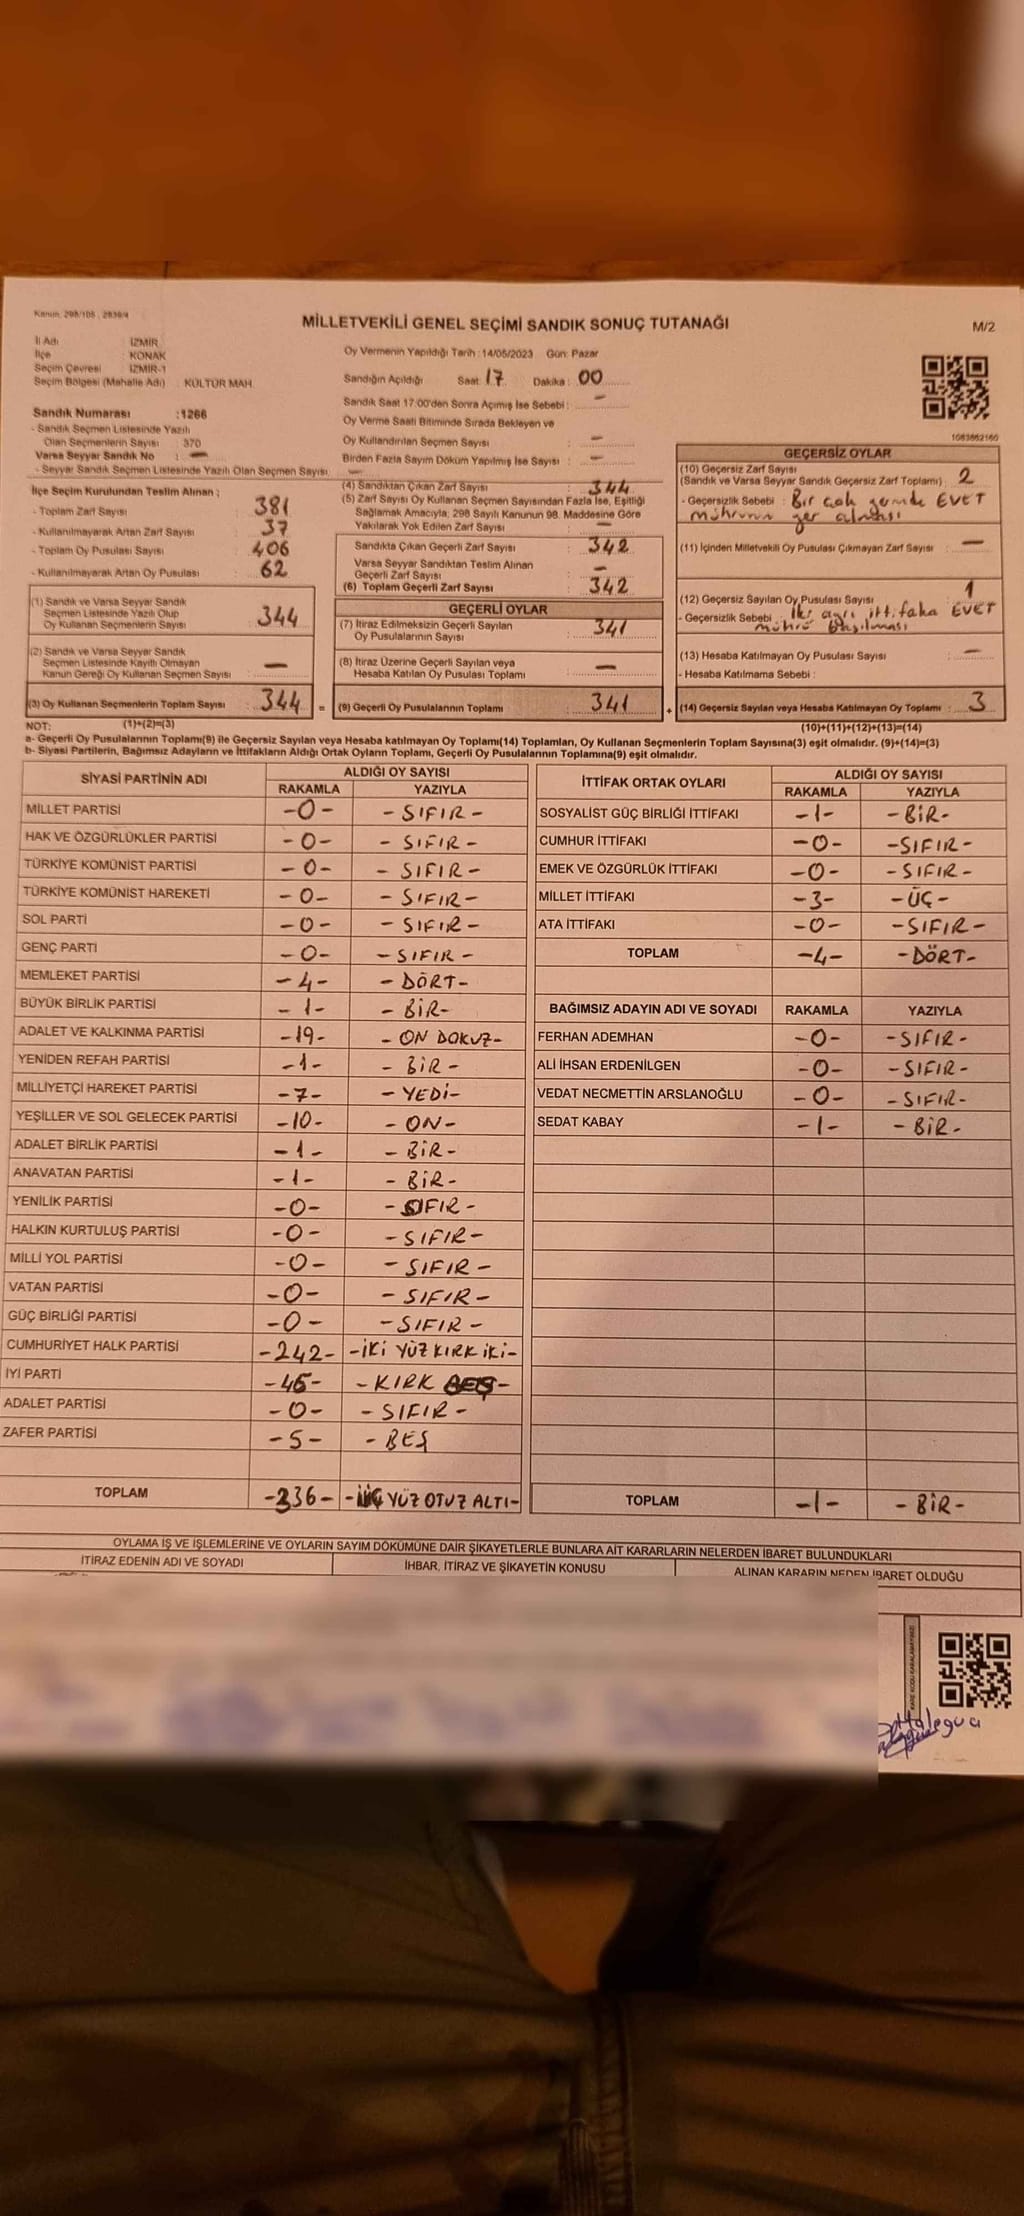 Kanun, 298/105 , 2839/4
MİLLETVEKİLİ GENEL SEÇİMİ SANDIK SONUÇ TUTANAĞI
M/2
İl Adı : İZMİR
İlçe : KONAK
Seçim Çevresi : İZMİR-1
Seçim Bölgesi (Mahalle Adı) : KÜLTÜR MAH.
Sandık Numarası :1266
- Sandık Seçmen Listesinde Yazılı
Olan Seçmenlerin Sayısı : 370
Varsa Seyyar Sandık No : -
- Seyyar Sandık Seçmen Listesinde Yazılı Olan Seçmen Sayısı : -
Oy Vermenin Yapıldığı Tarih : 14/05/2023 Gün: Pazar
Sandığın Açıldığı Saat : 17 Dakika : 00
Sandık Saat 17:00'den Sonra Açımış İse Sebebi : -
Oy Verme Saati Bitiminde Sırada Bekleyen ve
Oy Kullandırılan Seçmen Sayısı : -
Birden Fazla Sayım Döküm Yapılmış İse Sayısı : -
1083862160
İlçe Seçim Kurulundan Teslim Alınan ;
- Toplam Zarf Sayısı : 381
- Kullanılmayarak Artan Zarf Sayısı : 37
- Toplam Oy Pusulası Sayısı : 406
- Kullanılmayarak Artan Oy Pusulası : 62
(1) Sandık ve Varsa Seyyar Sandık
Seçmen Listesinde Yazılı Olup
Oy Kullanan Seçmenlerin Sayısı : 344
(2) Sandık ve Varsa Seyyar Sandık
Seçmen Listesinde Kayıtlı Olmayan
Kanun Gereği Oy Kullanan Seçmen Sayısı : -
(3) Oy Kullanan Seçmenlerin Toplam Sayısı : 344 =
(4) Sandıktan Çıkan Zarf Sayısı : 344
(5) Zarf Sayısı Oy Kullanan Seçmen Sayısından Fazla İse, Eşitliği
Sağlamak Amacıyla, 298 Sayılı Kanunun 98. Maddesine Göre
Yakılarak Yok Edilen Zarf Sayısı : -
Sandıkta Çıkan Geçerli Zarf Sayısı : 342
Varsa Seyyar Sandıktan Teslim Alınan
Geçerli Zarf Sayısı : -
(6) Toplam Geçerli Zarf Sayısı : 342
GEÇERLİ OYLAR
(7) İtiraz Edilmeksizin Geçerli Sayılan
Oy Pusulalarının Sayısı : 341
(8) İtiraz Üzerine Geçerli Sayılan veya
Hesaba Katılan Oy Pusulası Toplamı : -
(9) Geçerli Oy Pusulalarının Toplamı : 341 +
GEÇERSİZ OYLAR
(10) Geçersiz Zarf Sayısı
(Sandık ve Varsa Seyyar Sandık Geçersiz Zarf Toplamı) : 2
- Geçersizlik Sebebi : Bir çok yerinde EVET
mührünün yer alması
(11) İçinden Milletvekili Oy Pusulası Çıkmayan Zarf Sayısı : -
(12) Geçersiz Sayılan Oy Pusulası Sayısı : 1
- Geçersizlik Sebebi : İki ayrı ittifaka EVET
mührü basılması
(13) Hesaba Katılmayan Oy Pusulası Sayısı : -
- Hesaba Katılmama Sebebi :
(14) Geçersiz Sayılan veya Hesaba Katılmayan Oy Toplamı : 3
NOT: (1)+(2)=(3) (10)+(11)+(12)+(13)=(14)
a- Geçerli Oy Pusulalarının Toplamı(9) ile Geçersiz Sayılan veya Hesaba katılmayan Oy Toplamı(14) Toplamları, Oy Kullanan Seçmenlerin Toplam Sayısına(3) eşit olmalıdır. (9)+(14)=(3)
b- Siyasi Partilerin, Bağımsız Adayların ve İttifakların Aldığı Ortak Oyların Toplamı, Geçerli Oy Pusulalarının Toplamına(9) eşit olmalıdır.
SİYASİ PARTİNİN ADI ALDIĞI OY SAYISI
RAKAMLA YAZIYLA
MİLLET PARTİSİ -0- -SIFIR-
HAK VE ÖZGÜRLÜKLER PARTİSİ -0- -SIFIR-
TÜRKİYE KOMÜNİST PARTİSİ -0- -SIFIR-
TÜRKİYE KOMÜNİST HAREKETİ -0- -SIFIR-
SOL PARTİ -0- -SIFIR-
GENÇ PARTİ -0- -SIFIR-
MEMLEKET PARTİSİ -4- -DÖRT-
BÜYÜK BİRLİK PARTİSİ -1- -BİR-
ADALET VE KALKINMA PARTİSİ -19- -ON DOKUZ-
YENİDEN REFAH PARTİSİ -1- -BİR-
MİLLİYETÇİ HAREKET PARTİSİ -7- -YEDİ-
YEŞİLLER VE SOL GELECEK PARTİSİ -10- -ON-
ADALET BİRLİK PARTİSİ -1- -BİR-
ANAVATAN PARTİSİ -1- -BİR-
YENİLİK PARTİSİ -0- -SIFIR-
HALKIN KURTULUŞ PARTİSİ -0- -SIFIR-
MİLLİ YOL PARTİSİ -0- -SIFIR-
VATAN PARTİSİ -0- -SIFIR-
GÜÇ BİRLİĞİ PARTİSİ -0- -SIFIR-
CUMHURİYET HALK PARTİSİ -242- -İKİ YÜZ KIRK İKİ-
İYİ PARTİ -45- -KIRK BEŞ-
ADALET PARTİSİ -0- -SIFIR-
ZAFER PARTİSİ -5- -BEŞ
TOPLAM -336- -ÜÇ YÜZ OTUZ ALTI-
İTTİFAK ORTAK OYLARI ALDIĞI OY SAYISI
RAKAMLA YAZIYLA
SOSYALİST GÜÇ BİRLİĞİ İTTİFAKI -1- -BİR-
CUMHUR İTTİFAKI -0- -SIFIR-
EMEK VE ÖZGÜRLÜK İTTİFAKI -0- -SIFIR-
MİLLET İTTİFAKI -3- -ÜÇ-
ATA İTTİFAKI -0- -SIFIR-
TOPLAM -4- -DÖRT-
BAĞIMSIZ ADAYIN ADI VE SOYADI RAKAMLA YAZIYLA
FERHAN ADEMHAN -0- -SIFIR-
ALİ İHSAN ERDENİLGEN -0- -SIFIR-
VEDAT NECMETTİN ARSLANOĞLU -0- -SIFIR-
SEDAT KABAY -1- -BİR-
TOPLAM -1- -BİR-
OYLAMA İŞ VE İŞLEMLERİNE VE OYLARIN SAYIM DÖKÜMÜNE DAİR ŞİKAYETLERLE BUNLARA AİT KARARLARIN NELERDEN İBARET BULUNDUKLARI
İTİRAZ EDENİN ADI VE SOYADI İHBAR, İTİRAZ VE ŞİKAYETİN KONUSU ALINAN KARARIN NEDEN İBARET OLDUĞU